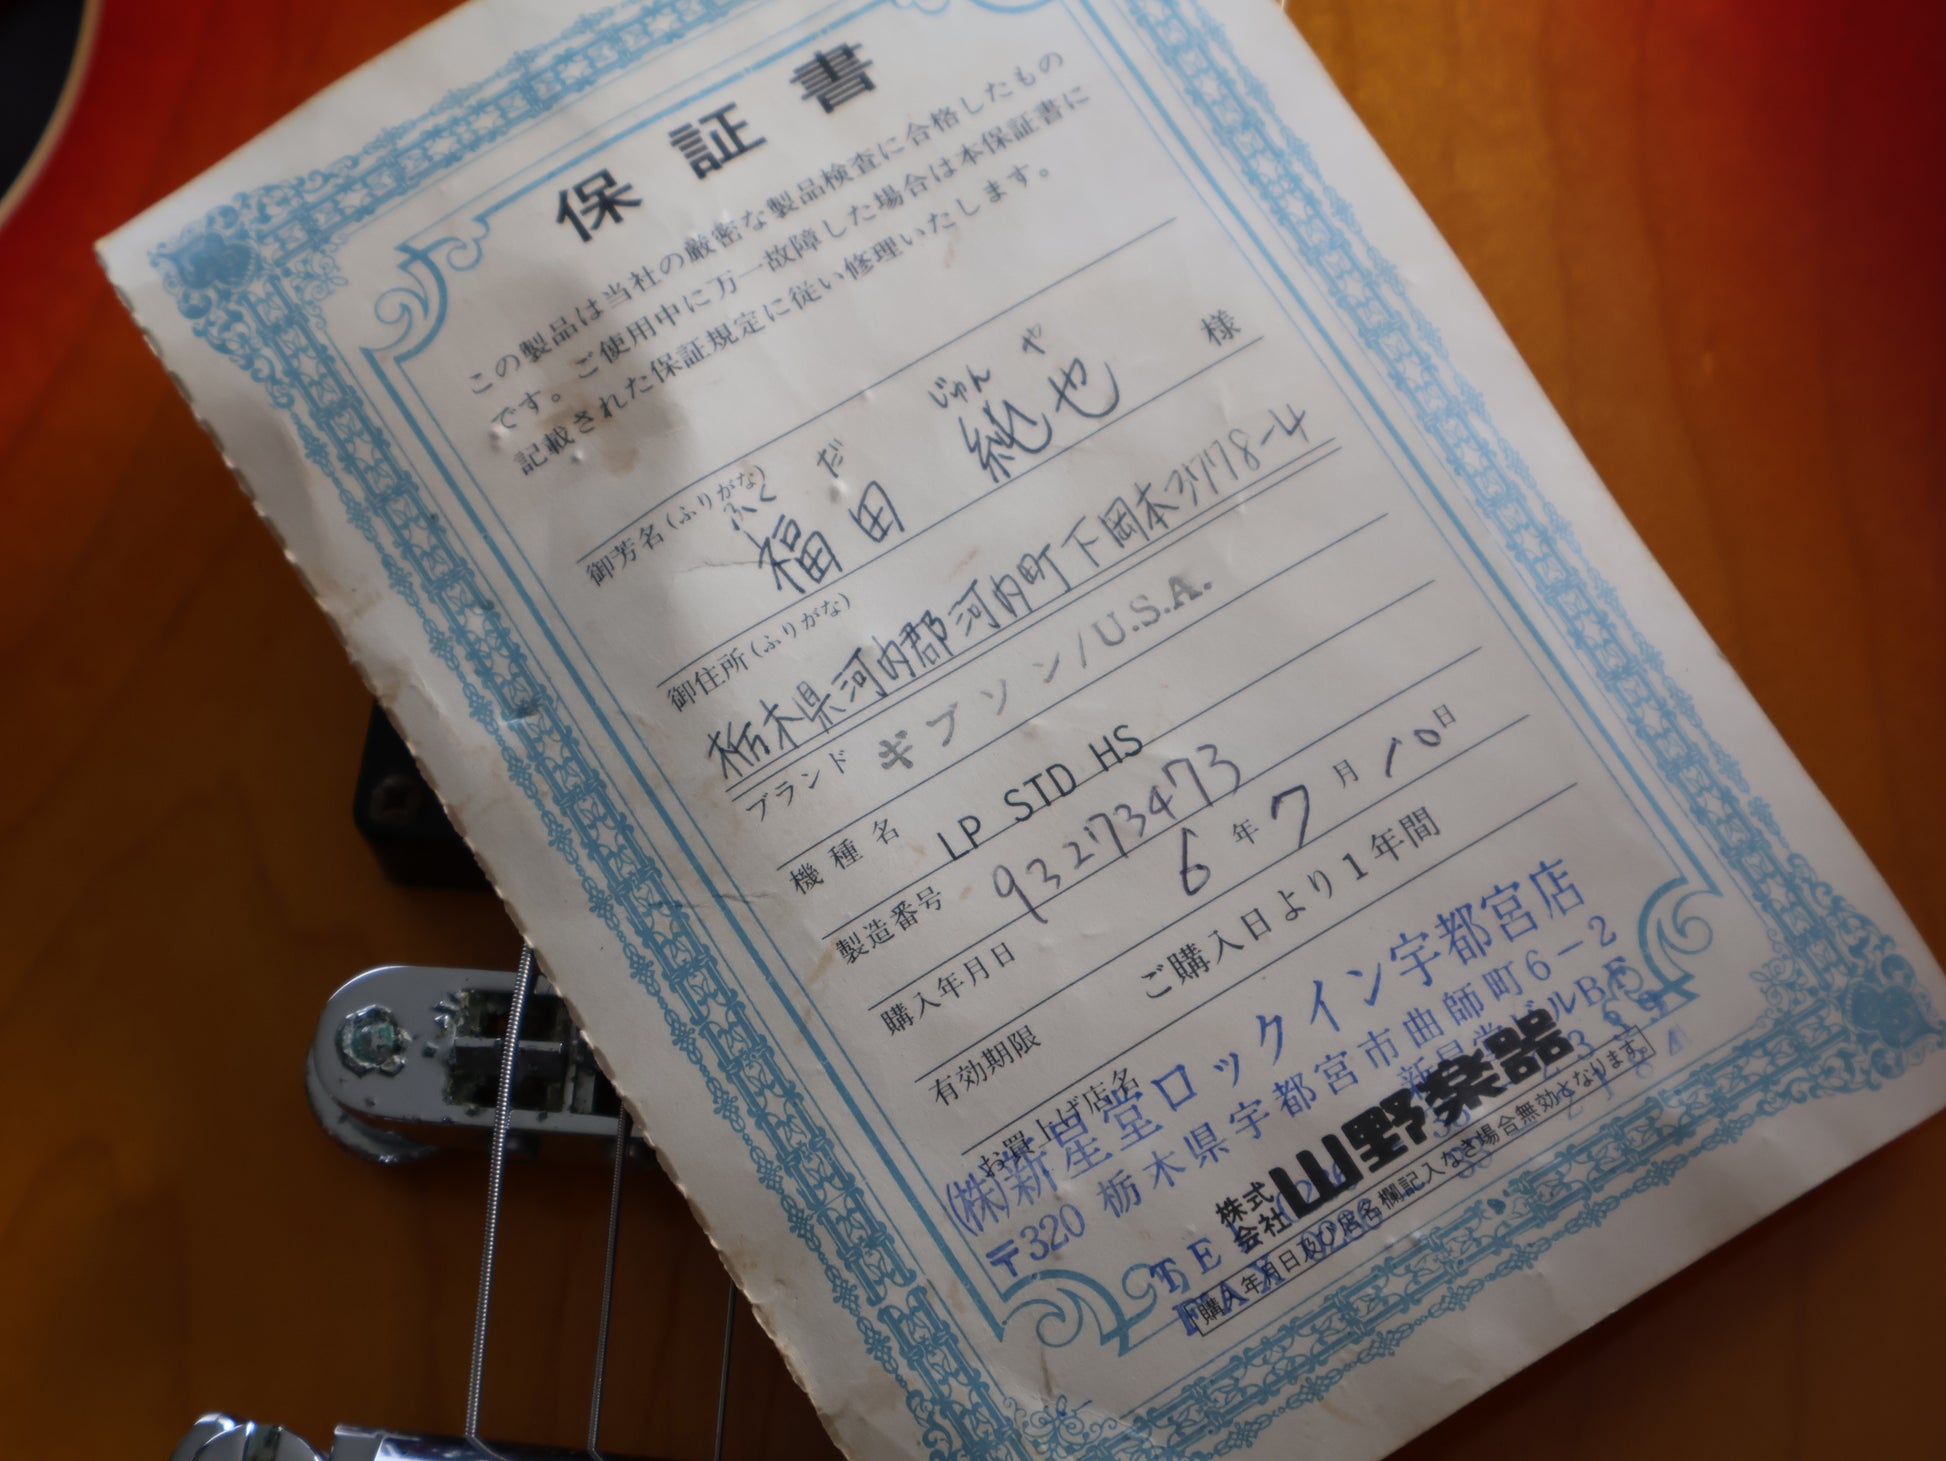 保証書
この製品は当社の厳密な製品検査に合格したもの
です。ご使用中に万一故障した場合は本保証書に
記載された保証規定に従い修理いたします。
御芳名(ふりがな)
ふく だ じゅん や
福田 純也 様
御住所(ふりがな)
栃木県河内郡河内町下岡本3778-4
ブランド ギブソン/U.S.A.
機種名 LP STD HS
製造番号 93273473
購入年月日 6年7月10日
有効期限 ご購入日より1年間
お買上げ店名
(株)新星堂ロックイン宇都宮店
〒320 栃木県宇都宮市曲師町6-2
新星堂ビルB
株式会社山野楽器
購入年月日及び店名欄記入なき場合無効となります